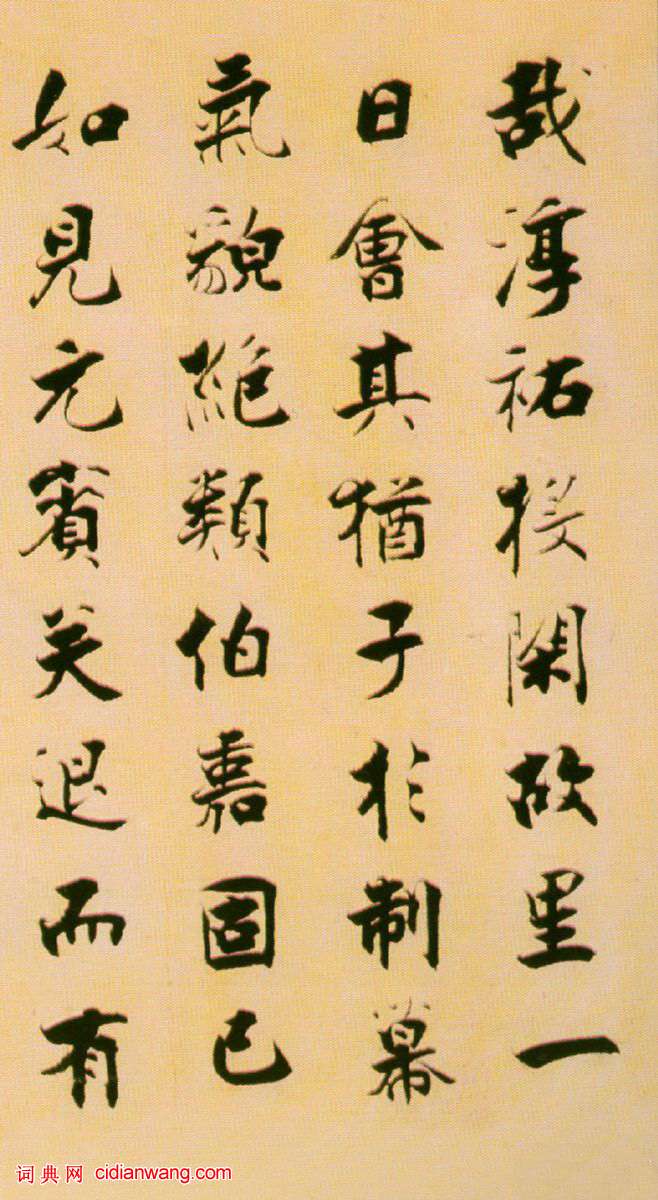 哉淳祐投闲故里一
日會其猶子於制幕
氣貌絶類伯嘉固已
如見元賓矣退而有
词典网 cidianwang.com